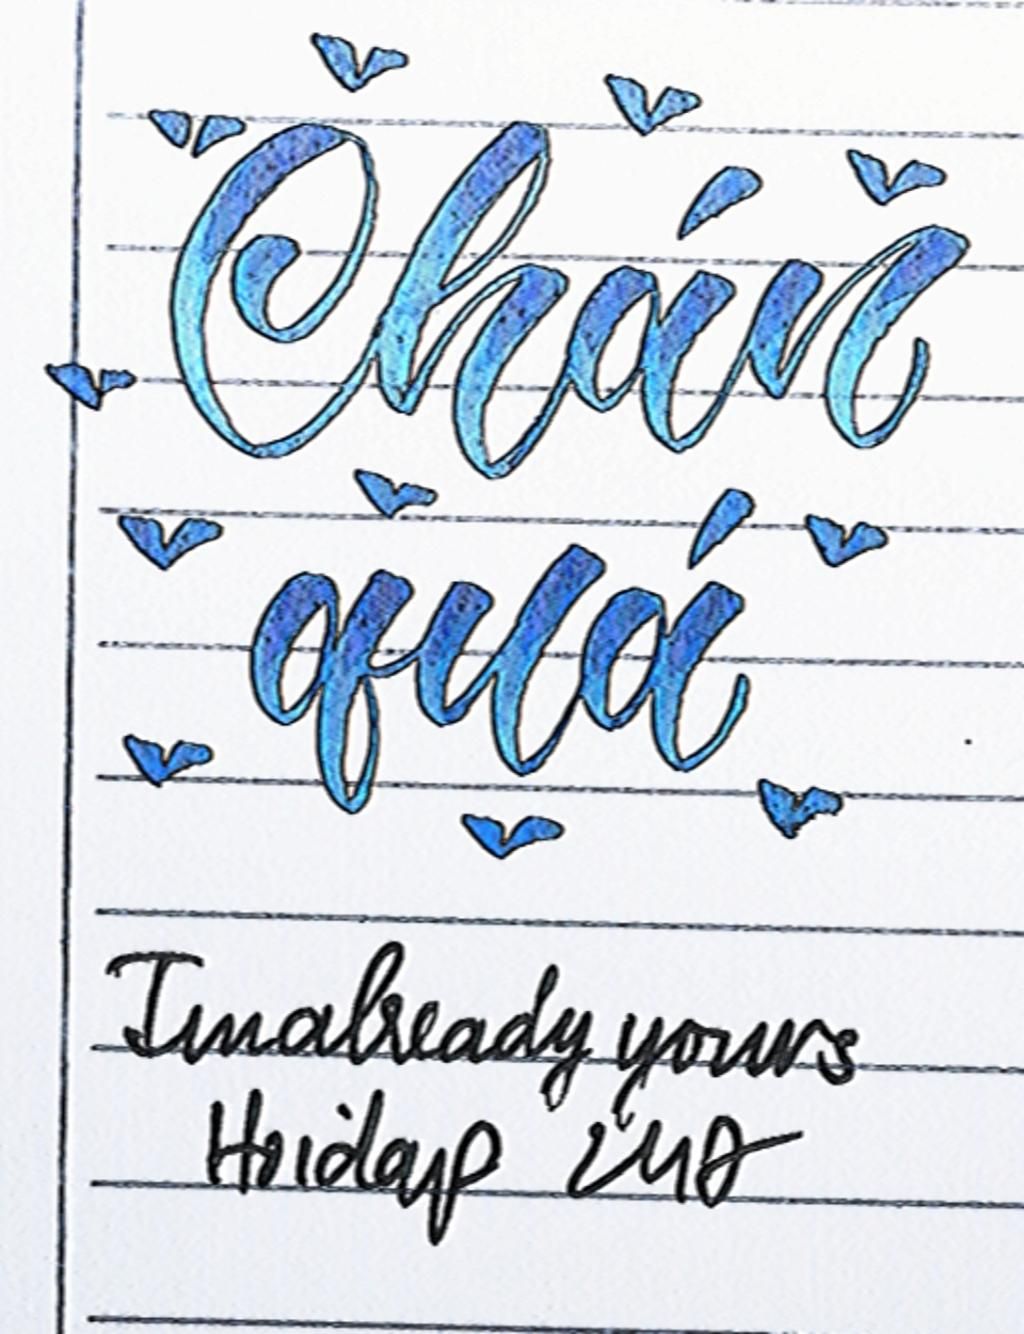 Chán
quá
Imalready yours
Hoidap 247